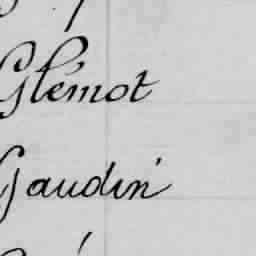 Glémot
Gaudin